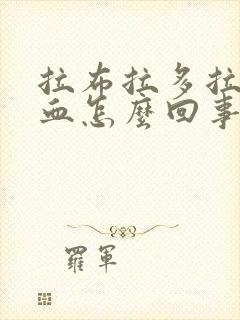 拉布拉多拉
血怎麼回事
羅軍